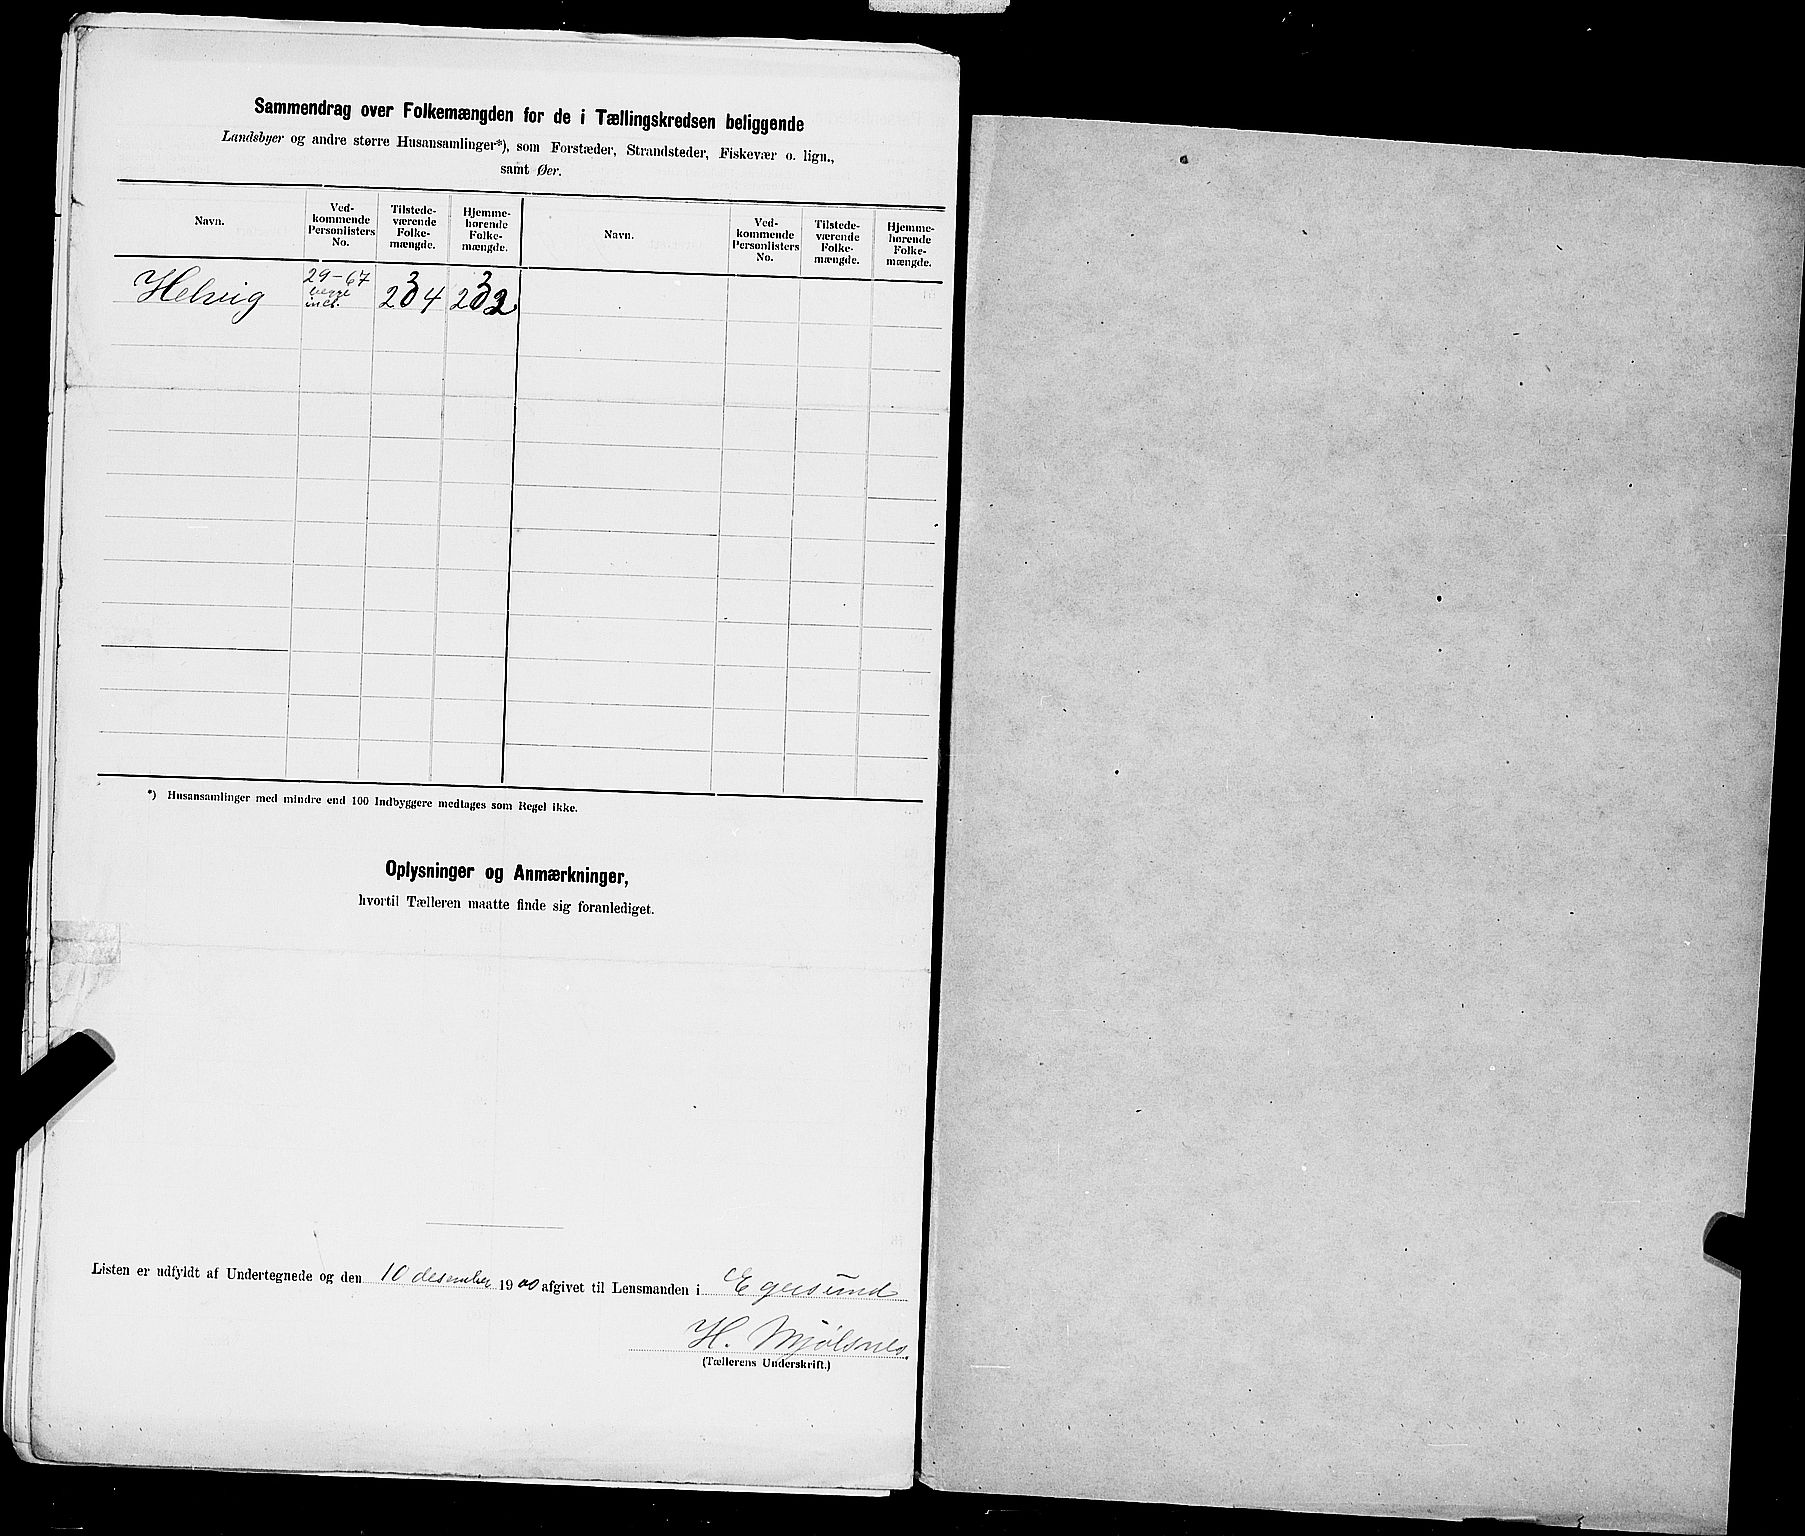 Sammendrag over Folkemængden for de i Tællingskredsen beliggende
Landsbyer og andre større Husansamlinger*), som Forstæder, Strandsteder, Fiskevær o. lign.,
samt Øer.
Navn.
Ved-
kommende
Personlisters
No.
Tilstede-
værende
Folke-
mængde.
Hjemme-
hørende
Folke-
mængde.
Navn.
Ved-
kommende
Personlisters
No.
Tilstede-
værende
Folke-
mængde.
Hjemme-
hørende
Folke-
mængde.
Helvig
29-67
begge
incl.
234
232
*) Husansamlinger med mindre end 100 Indbyggere medtages som Regel ikke.
Oplysninger og Anmærkninger,
hvortil Tælleren maatte finde sig foranlediget.
Listen er udfyldt af Undertegnede og den 10 desember 1900 afgivet til Lensmanden i Egersund
H. Mjølsnes.
(Tællerens Underskrift.)